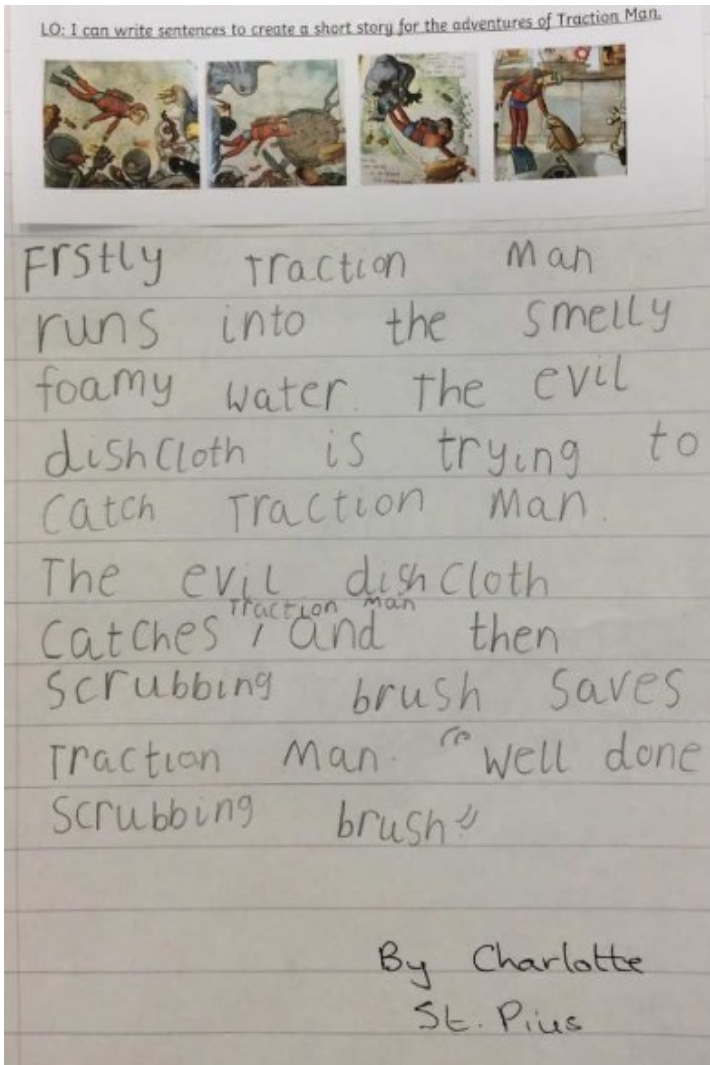 LO: I can write sentences to create a short story for the adventures of Traction Man.
Frstly Traction Man
runs into the smelly
foamy water. The evil
dishcloth is trying to
catch Traction Man.
The evil dishcloth
Traction Man
catches / and then
scrubbing brush saves
Traction Man. "Well done
scrubbing brush!"
By Charlotte
St. Pius